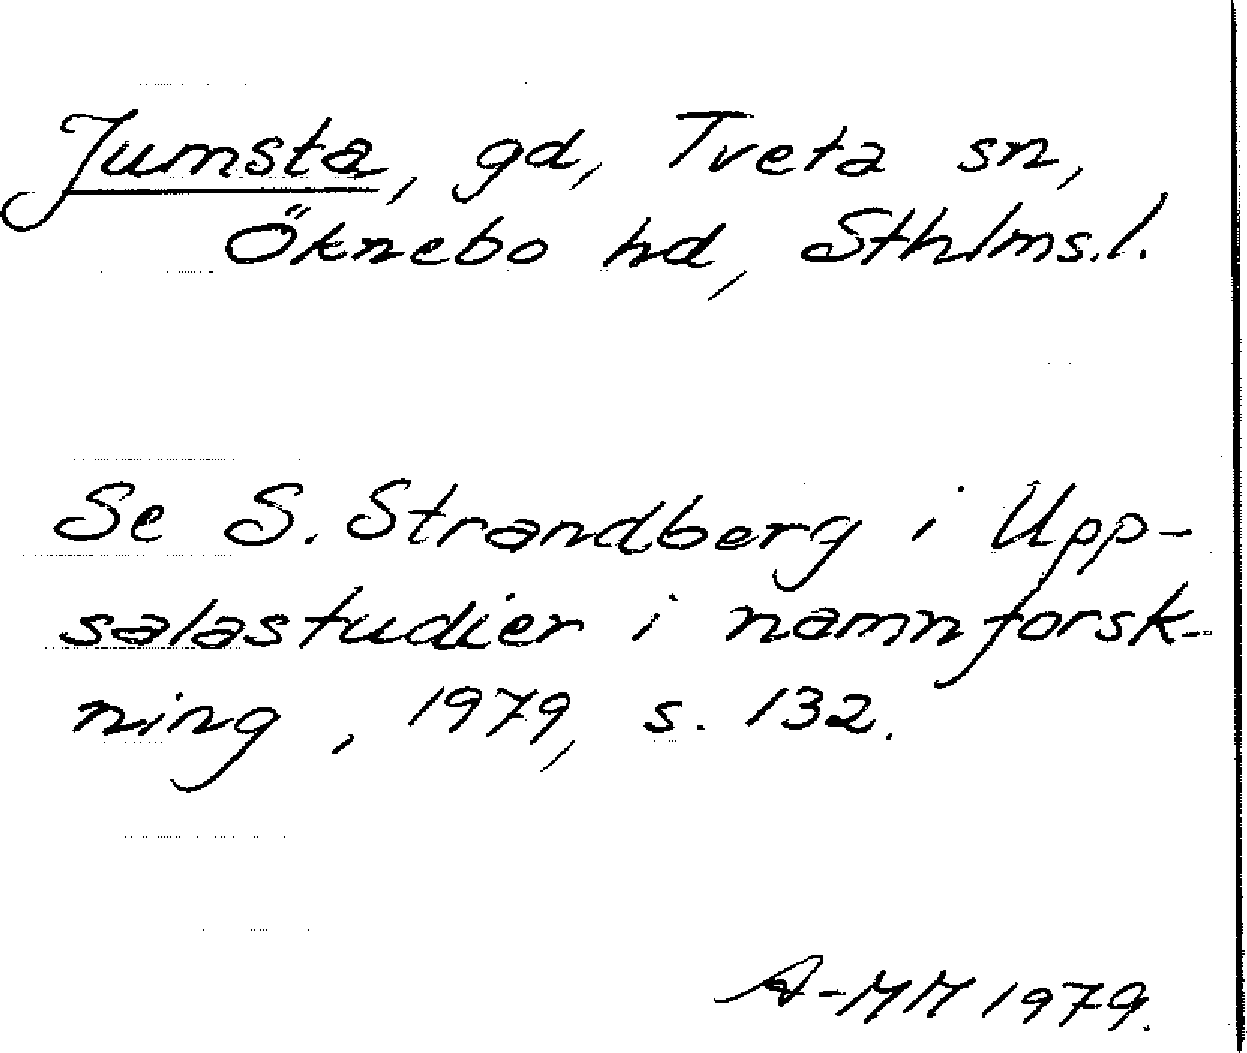 Jumsta, gd, Tveta sn,
Öknebo hd, Sthlms.l.
Se S. Strandberg i Upp-
salastudier i namnforsk-
ning, 1979, s. 132.
A-MM 1979.